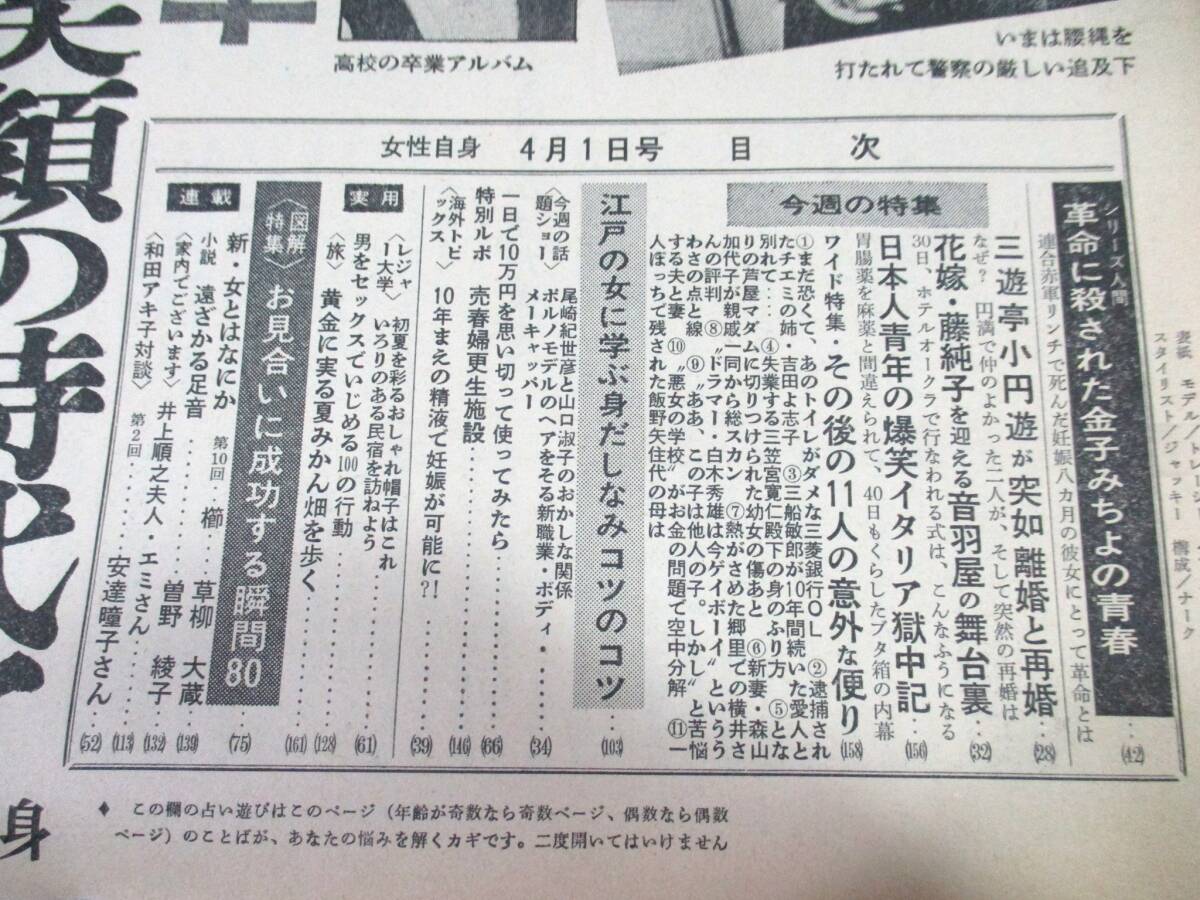 笑顔の時代
身
高校の卒業アルバム
いまは腰縄を
打たれて警察の厳しい追及下
女性自身 4月1日号 目 次
シリーズ人間
革命に殺された金子みちよの青春
連合赤軍リンチで死んだ妊娠八カ月の彼女にとって革命とは
(42)
今週の特集
三遊亭小円遊が突如離婚と再婚……(28)
なぜ? 円満で仲のよかった二人が、そして突然の再婚は
花嫁・藤純子を迎える音羽屋の舞台裏……(32)
30日、ホテルオークラで行なわれる式は、こんなふうになる
日本人青年の爆笑イタリア獄中記……(156)
胃腸薬を麻薬と間違えられて、40日もくらしたブタ箱の内幕
ワイド特集・その後の11人の意外な便り(158)
①まだ恐くて、あのトイレがダメな三菱銀行OL ②逮捕され
たチエミの姉・吉田よ志子 ③三船敏郎が10年間続いた愛人と
別れて… ④失業する三笠宮寛仁殿下の身のふり方 ⑤とな
りの芦屋マダムに切りつけられた幼女の傷あと ⑥新妻・森山
加代子が親戚一同から総スカン ⑦熱がさめた郷里での横井さ
んの評判 ⑧“ドラマー・白木秀雄は今ゲイボーイ”といううう
わさの点と線 ⑨“ああ、この子は他人の子。しかし”と苦悩
する夫と妻 ⑩“悪女の学校”がお金の問題で空中分解 ⑪一
人ぼっちで残された飯野矢住代の母は
江戸の女に学ぶ身だしなみコツのコツ……(103)
〈今週の話題ショー〉
尾崎紀世彦と山口淑子のおかしな関係
ポルノモデルのヘアをそる新職業・ボディ・
メーキャッパー……(34)
一日で10万円を思い切って使ってみたら……(66)
特別ルポ 売春婦更生施設……(146)
〈海外トピックス〉 10年まえの精液で妊娠が可能に?!……(39)
実用
〈レジャー大学〉 初夏を彩るおしゃれ帽子はこれ
いろりのある民宿を訪ねよう……(61)
男をセックスでいじめる100の行動……(128)
〈旅〉 黄金に実る夏みかん畑を歩く……(161)
〈図解特集〉 お見合いに成功する瞬間80……(75)
連載
新・女とはなにか 第10回 櫛 草柳 大蔵……(139)
小説 遠ざかる足音……曽野 綾子……(132)
〈家内でございます〉 井上順之夫人・エミさん……(113)
〈和田アキ子対談〉 第2回……安達瞳子さん……(52)
表紙 モデル/トレ
スタイリスト/ジャッキー 構成/ナーク
◆ この欄の占い遊びはこのページ(年齢が奇数なら奇数ページ、偶数なら偶数
ページ)のことばが、あなたの悩みを解くカギです。二度開いてはいけません